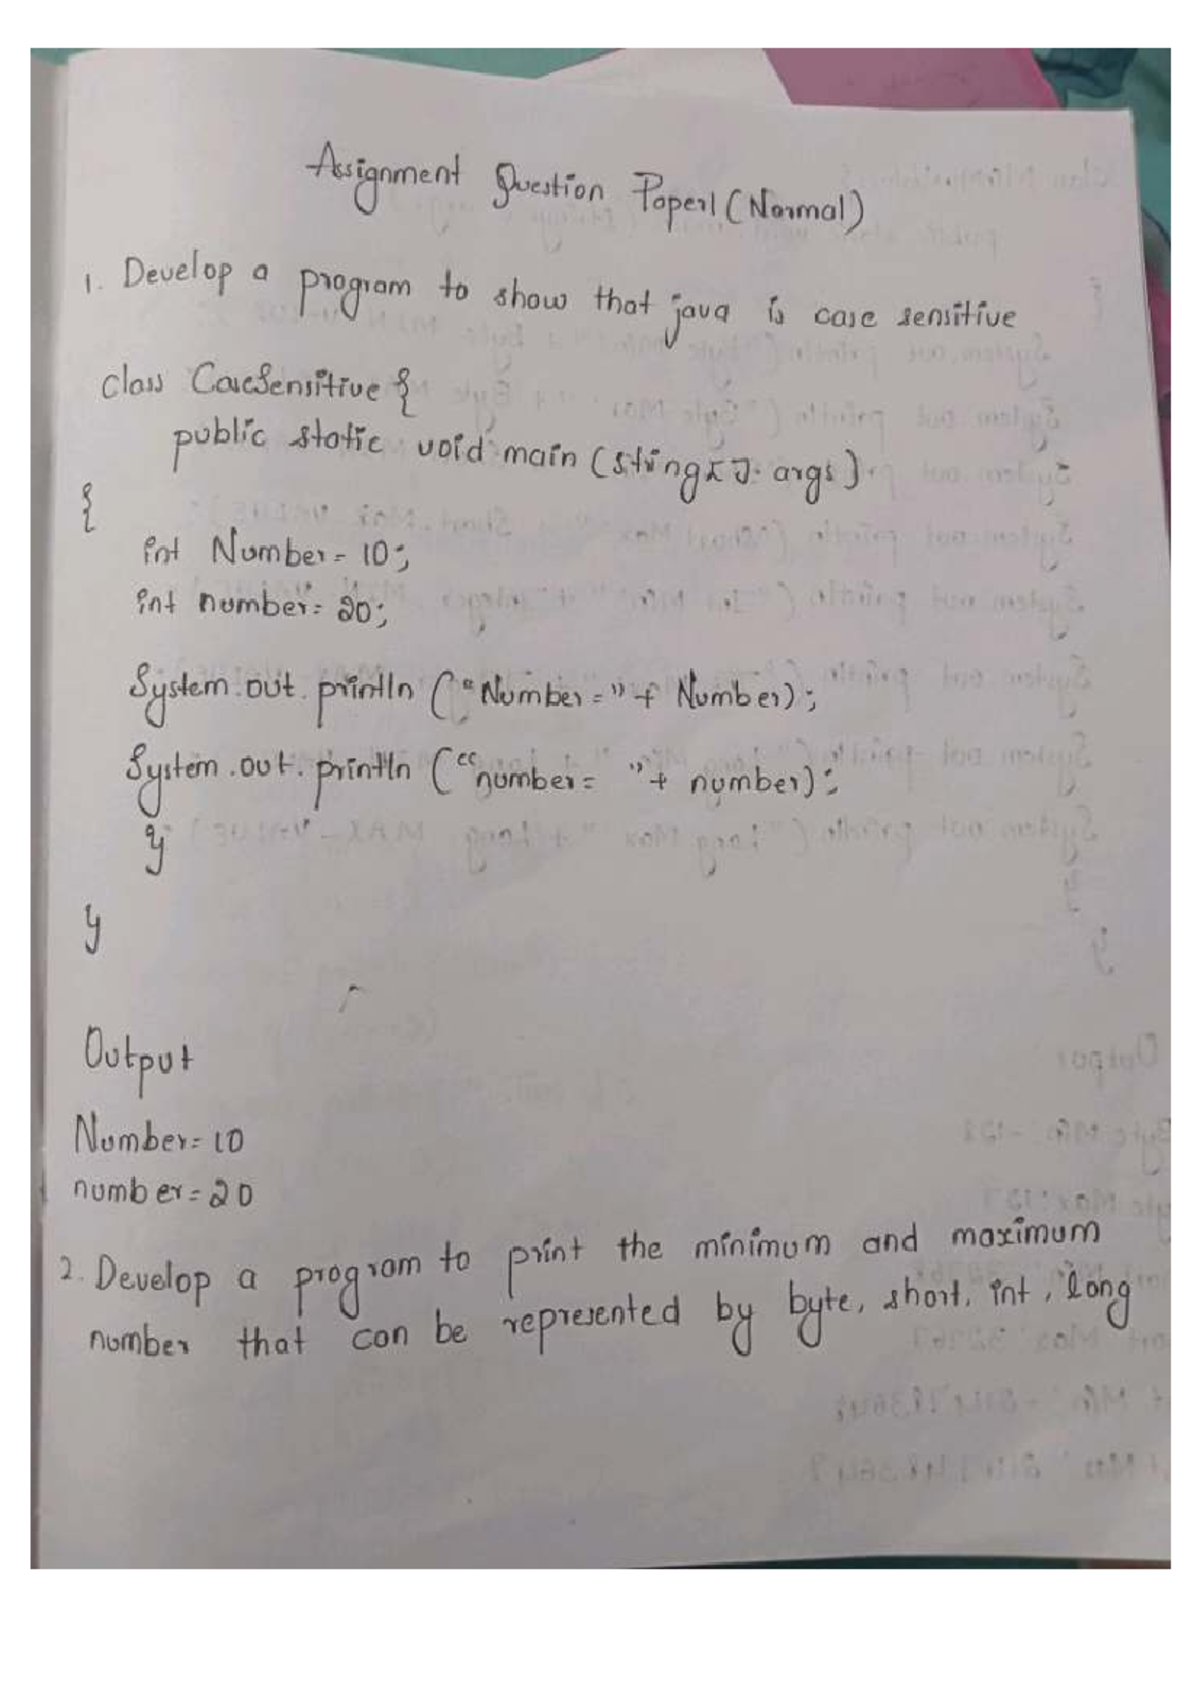 Assignment Question Paper1 (Normal)
1. Develop a program to show that java is case sensitive
class CaseSensitive {
public static void main (string[]. args)
{
int Number = 10;
int number = 20;
System.out.println ("Number = "+ Number);
System.out.println ("number = "+ number);
}
}
Output
Number = 10
number = 20
2. Develop a program to print the minimum and maximum
number that can be represented by byte, short, int, long